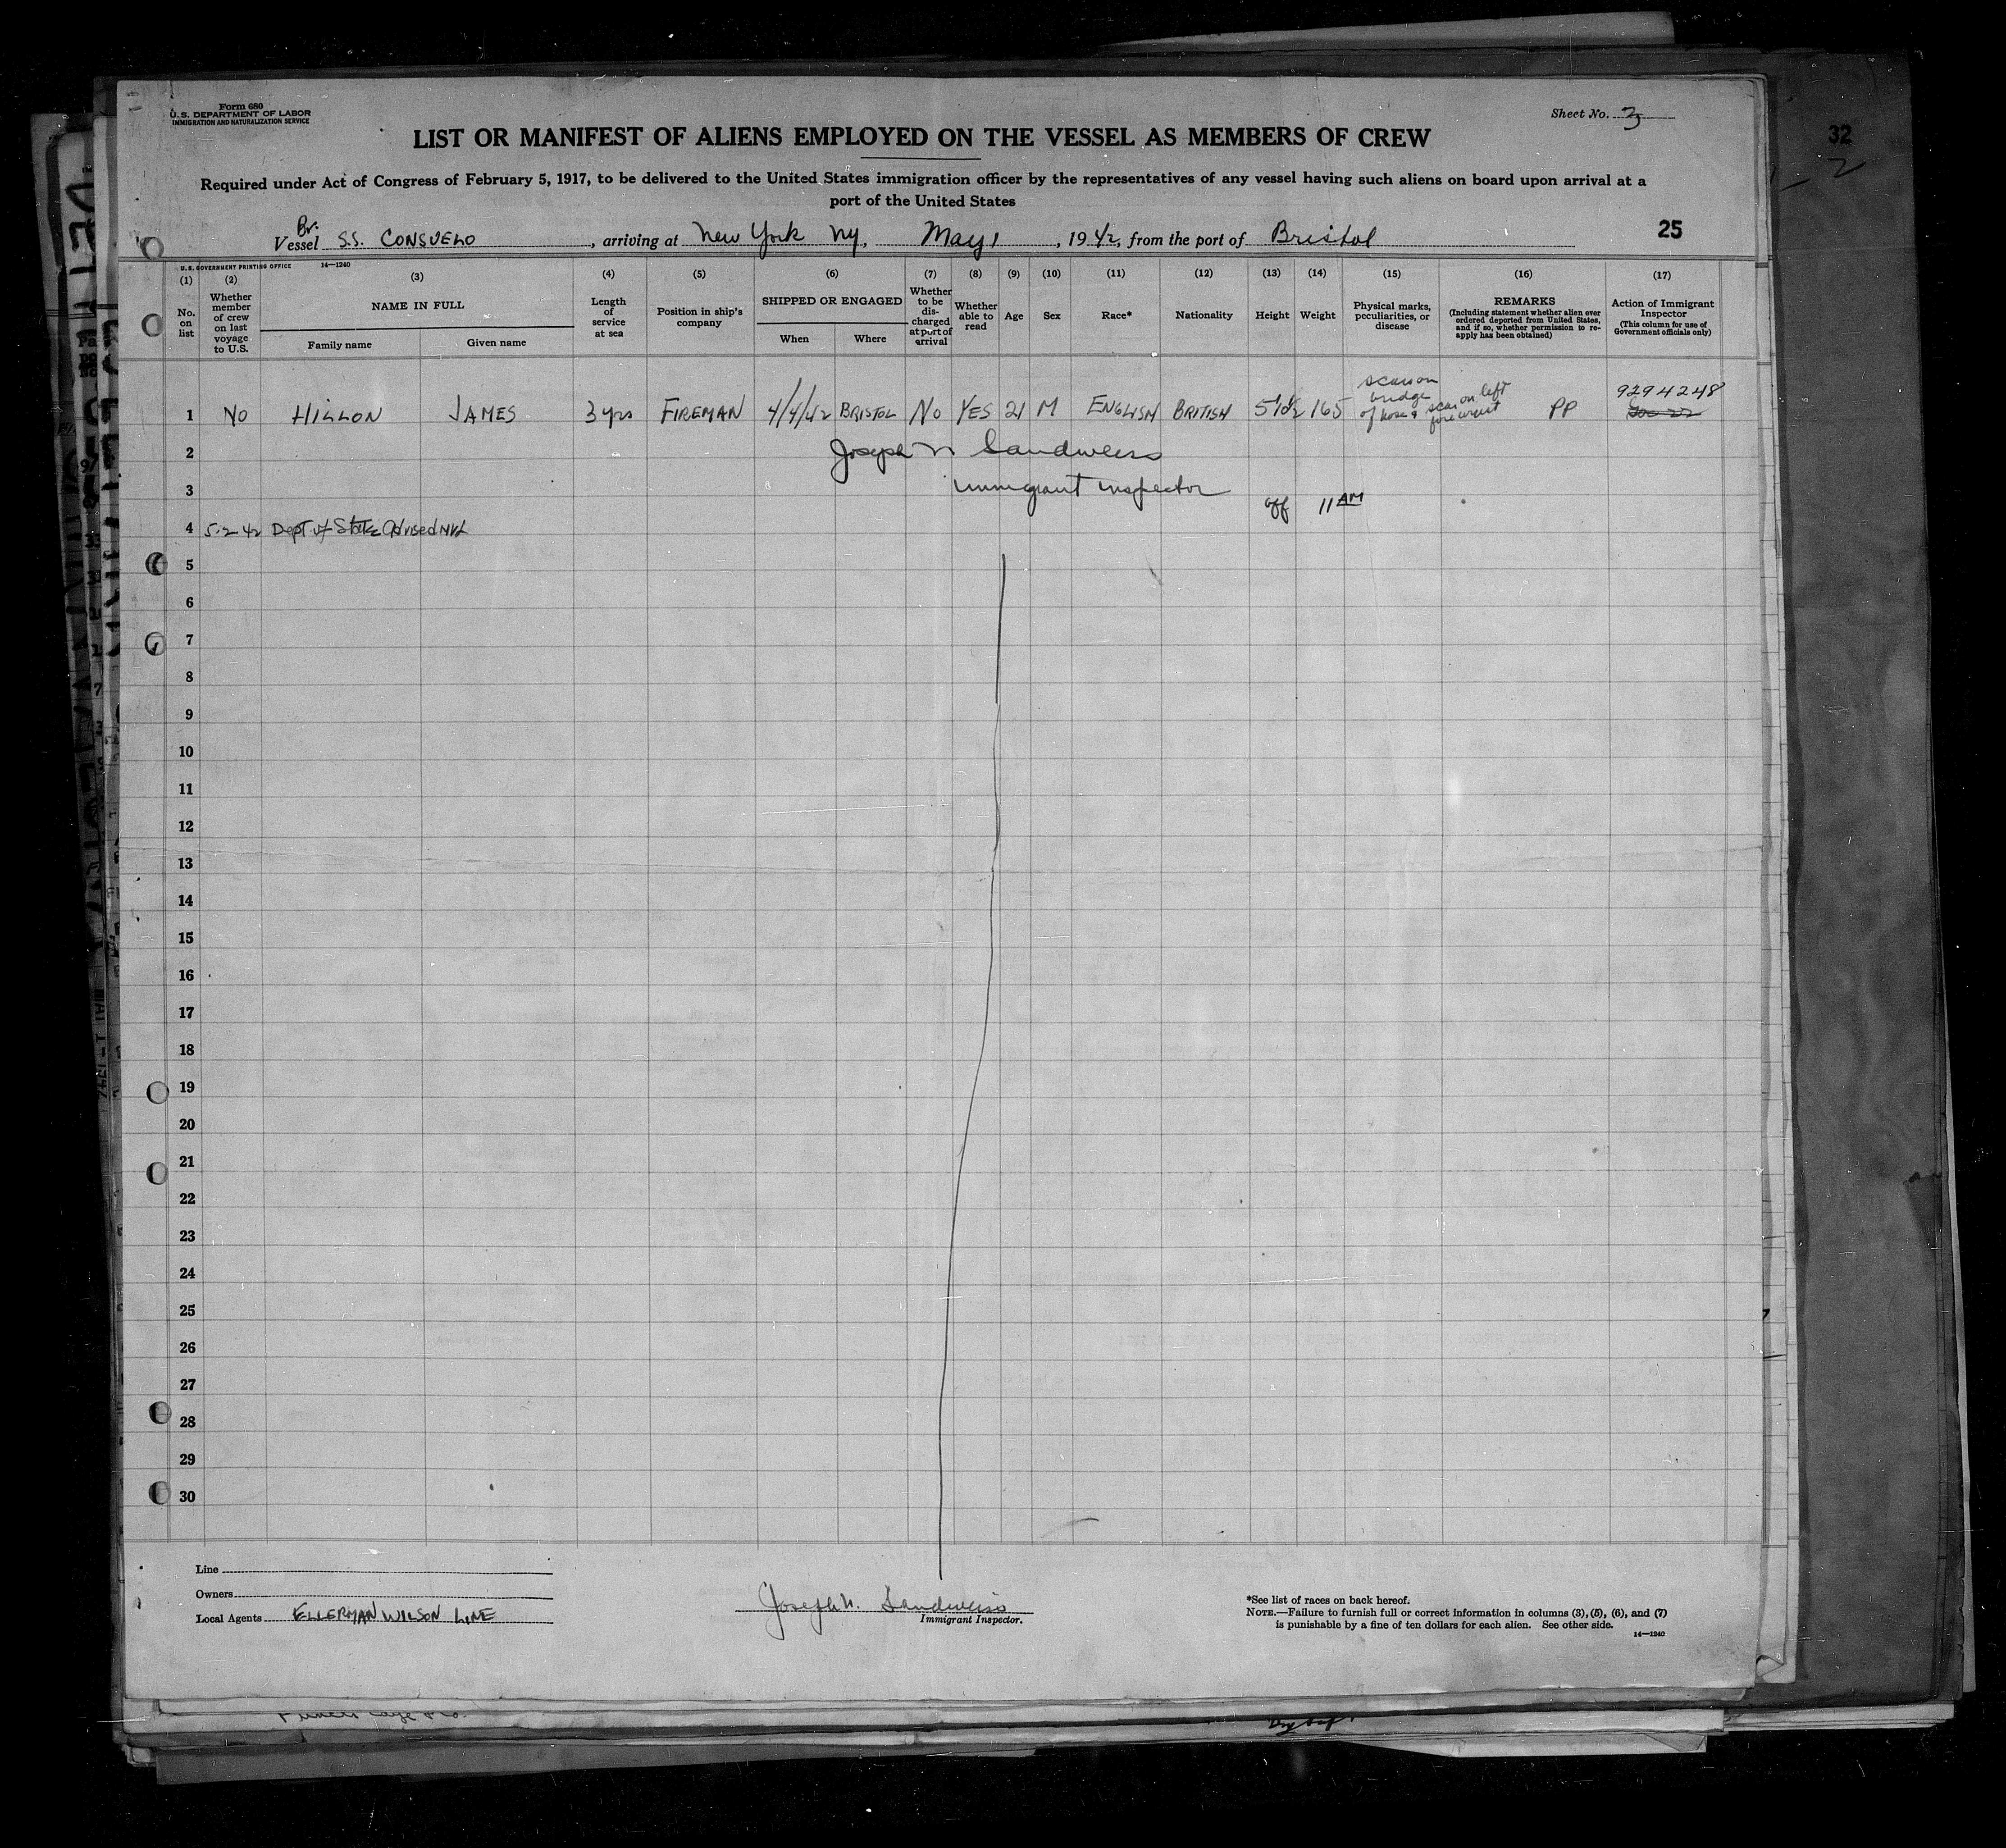 Form 680
U.S. DEPARTMENT OF LABOR
IMMIGRATION AND NATURALIZATION SERVICE
Sheet No. 3
LIST OR MANIFEST OF ALIENS EMPLOYED ON THE VESSEL AS MEMBERS OF CREW
32
2
Required under Act of Congress of February 5, 1917, to be delivered to the United States immigration officer by the representatives of any vessel having such aliens on board upon arrival at a
port of the United States
Br.
Vessel S.S. CONSUELO, arriving at New York NY, May 1, 1942, from the port of Bristol
25
U.S. GOVERNMENT PRINTING OFFICE 14—1240
(1) No. on list
(2) Whether member of crew on last voyage to U.S.
(3) NAME IN FULL
Family name Given name
(4) Length of service at sea
(5) Position in ship's company
(6) SHIPPED OR ENGAGED
When Where
(7) Whether to be discharged at port of arrival
(8) Whether able to read
(9) Age
(10) Sex
(11) Race*
(12) Nationality
(13) Height
(14) Weight
(15) Physical marks, peculiarities, or disease
(16) REMARKS
(Including statement whether alien ever ordered deported from United States, and if so, whether permission to re-apply has been obtained)
(17) Action of Immigrant Inspector
(This column for use of Government officials only)
1 NO HILLON JAMES 3 yrs FIREMAN 4/4/42 BRISTOL NO YES 21 M ENGLISH BRITISH 165 scar on bridge of nose & scar on left PP 9294248
2 Joseph N Sandweiss
3 Immigrant Inspector off 11 AM
4 5-2-42 Dept of State Advised
5
6
7
8
9
10
11
12
13
14
15
16
17
18
19
20
21
22
23
24
25
26
27
28
29
30
Line
Owners
Local Agents ELLERMAN WILSON LINE
Joseph N. Sandweiss
Immigrant Inspector.
*See list of races on back hereof.
NOTE.—Failure to furnish full or correct information in columns (3), (5), (6), and (7)
is punishable by a fine of ten dollars for each alien. See other side.
14—1240